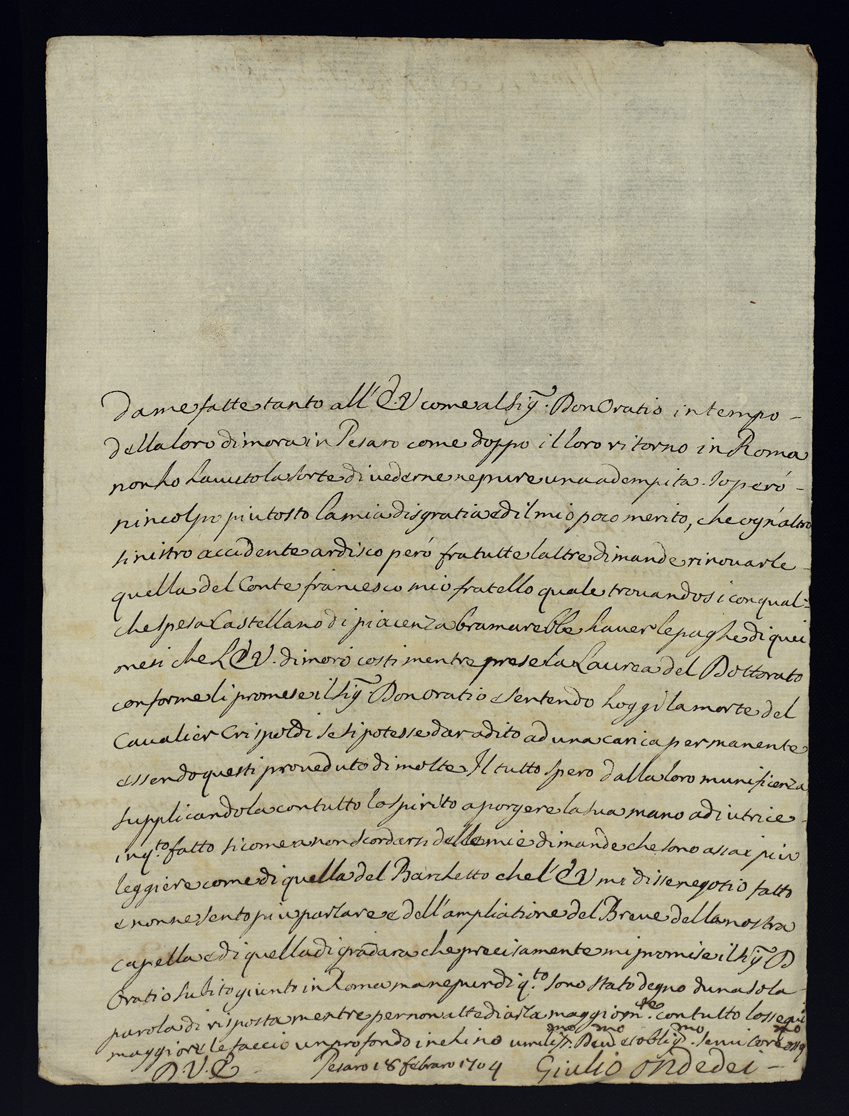 Da me fatte tanto all'E.V come al Sig.r Don Oratio in tempo -
della loro dimora in Pesaro come doppo il loro ritorno in Roma
non ho havuto la sorte di vederne nepure una adempita. Io peró -
n'incolpo piu tosto la mia disgratia e di il mio poco merito, che ogn'altro
sinistro accidente ardisco peró fra tutte l'altre dimande rinovarle
quella del Conte francesco mio fratello quale trovandosi con qual-
che spesa Castellano di piacenza bramarebbe haver le paghe di quei
mesi che L'E.V. dimoró costi mentre prese la Laurea del Dottorato
conforme li promese il Sig.r Don Oratio e sentendo hoggi la morte del
Cavalier Crispoldi se si potesse dar adito ad una carica permanente
essendo questi proveduto di molte Il tutto spero dalla loro munificenza
supplicandola con tutto lo spirito a porgere la sua mano adiutrice -
in q.to fatto sicome a non scordarsi delle mie dimande che sono assai piu
leggiere come di quella del Barchetto che l'E.V mi disse negotio fatto
e non ne sento piu parlare e dell'ampliatione del Breve della nostra
capella e di quella di gradara che precisamente mi promise il Sig.r D
Oratio subito giunto in Roma ma nepur di q.to sono stato degno d'una sola -
parola di risposta mentre per non attediarla maggiorm.te con tutto l'ossequi
maggiore le faccio un profondo inchino
D.V.E. Pesaro 18 febraro 1704 Giulio Ondedei -